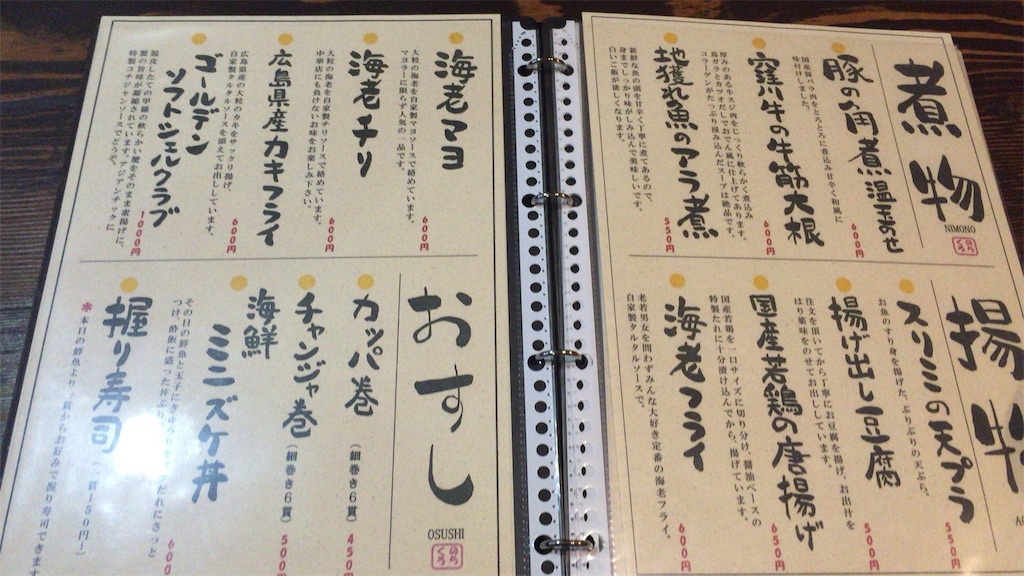 煮物
NIMONO
のろくろ
豚の角煮温玉のせ
国産豚バラ肉をとろとろに煮込み甘辛く和風に
味付けしました。
600円
窪川牛の牛筋大根
厚みのある牛スジ肉をじっくり軟らかく煮込み
鳥ガラとカツオだしでおでん風に仕上げてあります。
コラーゲンがたっぷり浸み込んだスープは絶品です。
600円
地獲れ魚のアラ煮
新鮮な魚の頭を甘辛く丁寧に煮てあるので、
身までしっかり味がしみ込んで美味しいです。
白いご飯が欲しくなります。
550円
揚物
スリミの天プラ
お魚のすり身を揚げた、ぷりぷりの天ぷら。
550円
揚げ出し豆腐
注文を頂いてから丁寧にお豆腐を揚げ、お出汁を
はり薬味をのせてお出ししています。
500円
国産若鶏の唐揚げ
国産若鶏を一口サイズに切り分け、醤油ベースの
特製たれに十分漬け込んでから、揚げています。
650円
海老フライ
老若男女を問わずみんな大好き定番の海老フライ。
自家製タルタルソースで。
600円
海老マヨ
大粒の海老を自家製マヨソースで絡めています。
マヨラーに限らず人気の一品です。
600円
海老チリ
大粒の海老を自家製チリソースで絡めています。
中華店にも負けないお味をお楽しみ下さい。
600円
広島県産カキフライ
広島県産の大粒のカキをサックリ揚げ、
自家製タルタルソースを添えてお出ししています。
600円
ゴールデン
ソフトシェルクラブ
脱皮したての甲羅の軟らかい蟹をそのまま素揚げに、
蟹の旨味が凝縮されています。アジアンチックに
特製コチジャンソースでどうぞ。
1000円
おすし
OSUSHI
のろくろ
カッパ巻
(細巻き6貫)
450円
チャンジャ巻
(細巻き6貫)
500円
海鮮
ミニズケ丼
その日の鮮魚と玉子にきゅうり
つけ、酢飯に盛った丼ぶり
だれにさっと
600
握り寿司
(一貫150円~)
*本日の鮮魚より一貫からお好みで握り寿司できます